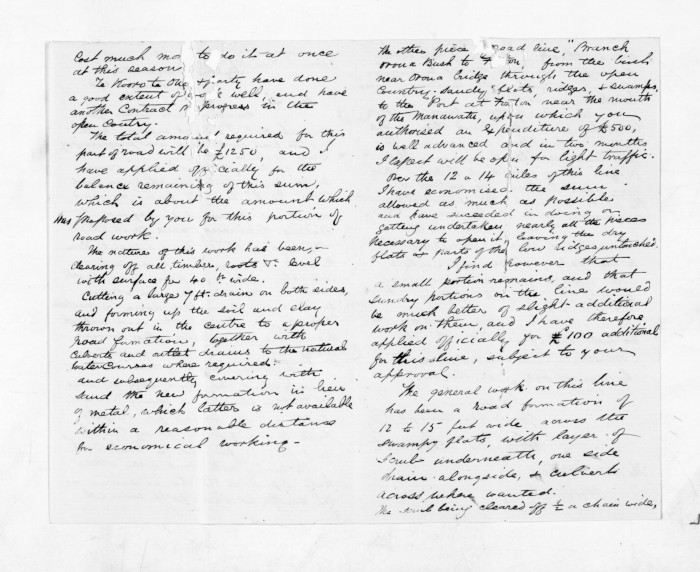 Cost much mo to do it at once
at this season
Te Kooro te One & party have done
a good extent of well, and have
another Contract in progress in the
open Country.
The total amount required for this
part of road will be £1250, and I
have applied officially for the
balance remaining of this sum,
which is about the amount which
was proposed by you for this portion of
road work.
The nature of this work has been,-
clearing off all timber, roots &c level
with surface for 40 ft wide.
Cutting a large 7ft drain on both sides,
and forming up the soil and clay
thrown out in the centre to a proper
road formation, together with
culverts and outlet drains to the natural
watercourses where required.
and subsequently covering with
sand the new formation in lieu
of metal, which latter is not available
within a reasonable distance
for economical working -
The other piece road line, "Branch
Oroua Bush to Foxton, from the bush
near Oroua Bridge through the open
Country, Sandy flats, ridges, & swamps,
to the Port at Foxton near the mouth
of the Manawatu, upon which you
authorised an Expenditure of £500,
is well advanced and in two months
I expect will be open for light traffic.
Over the 12 or 14 miles of this line
I have economised the sum
allowed as much as possible
and have succeeded in doing or
getting undertaken nearly all the pieces
necessary to open it, leaving the dry
flats & parts of the low ridges untouched.
I find however that
a small portion remains, and that
sundry portions on the line would
be much better of slight additional
work on them, and I have therefore
applied officially for £100 additional
for this line, subject to your
approval.
The general work on this line
has been a road formation of
12 to 15 feet wide across the
swampy flats, with layer of
scrub underneath, one side
drain alongside, & culverts
across where wanted.
The scrub being cleared off ½ a chain wide,